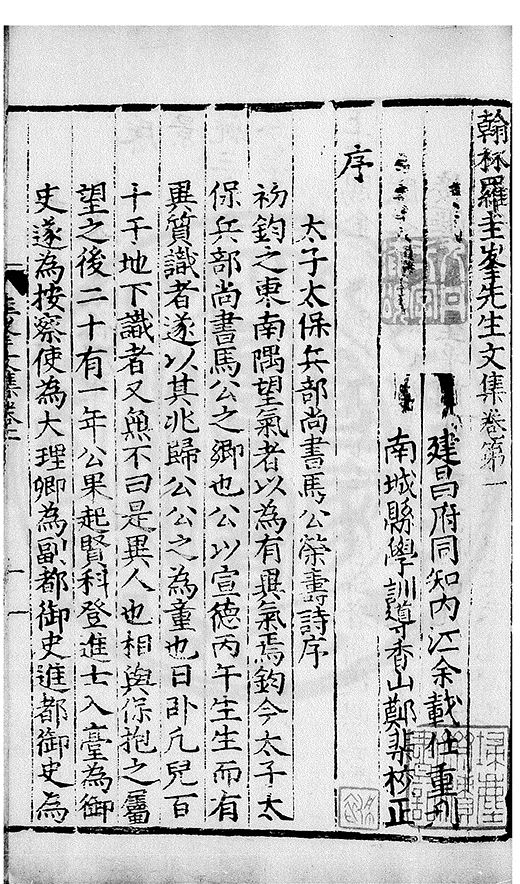 翰林羅圭峯先生文集卷第一
建昌府同知內江余載仕重刋
南城縣學訓導香山鄭 校正
序
太子太保兵部尚書馬公榮壽詩序
初鈞之東南隅望氣者以為有異氣焉鈞今太子太
保兵部尚書馬公之鄉也公以宣德丙午生生而有
異質識者遂以其兆歸公公之為童也日卧凡兒百
十于地下識者又無不曰是異人也相與保抱之屬
望之後二十有一年公果起賢科登進士入臺為御
史遂為按察使為大理卿為副都御史進都御史為